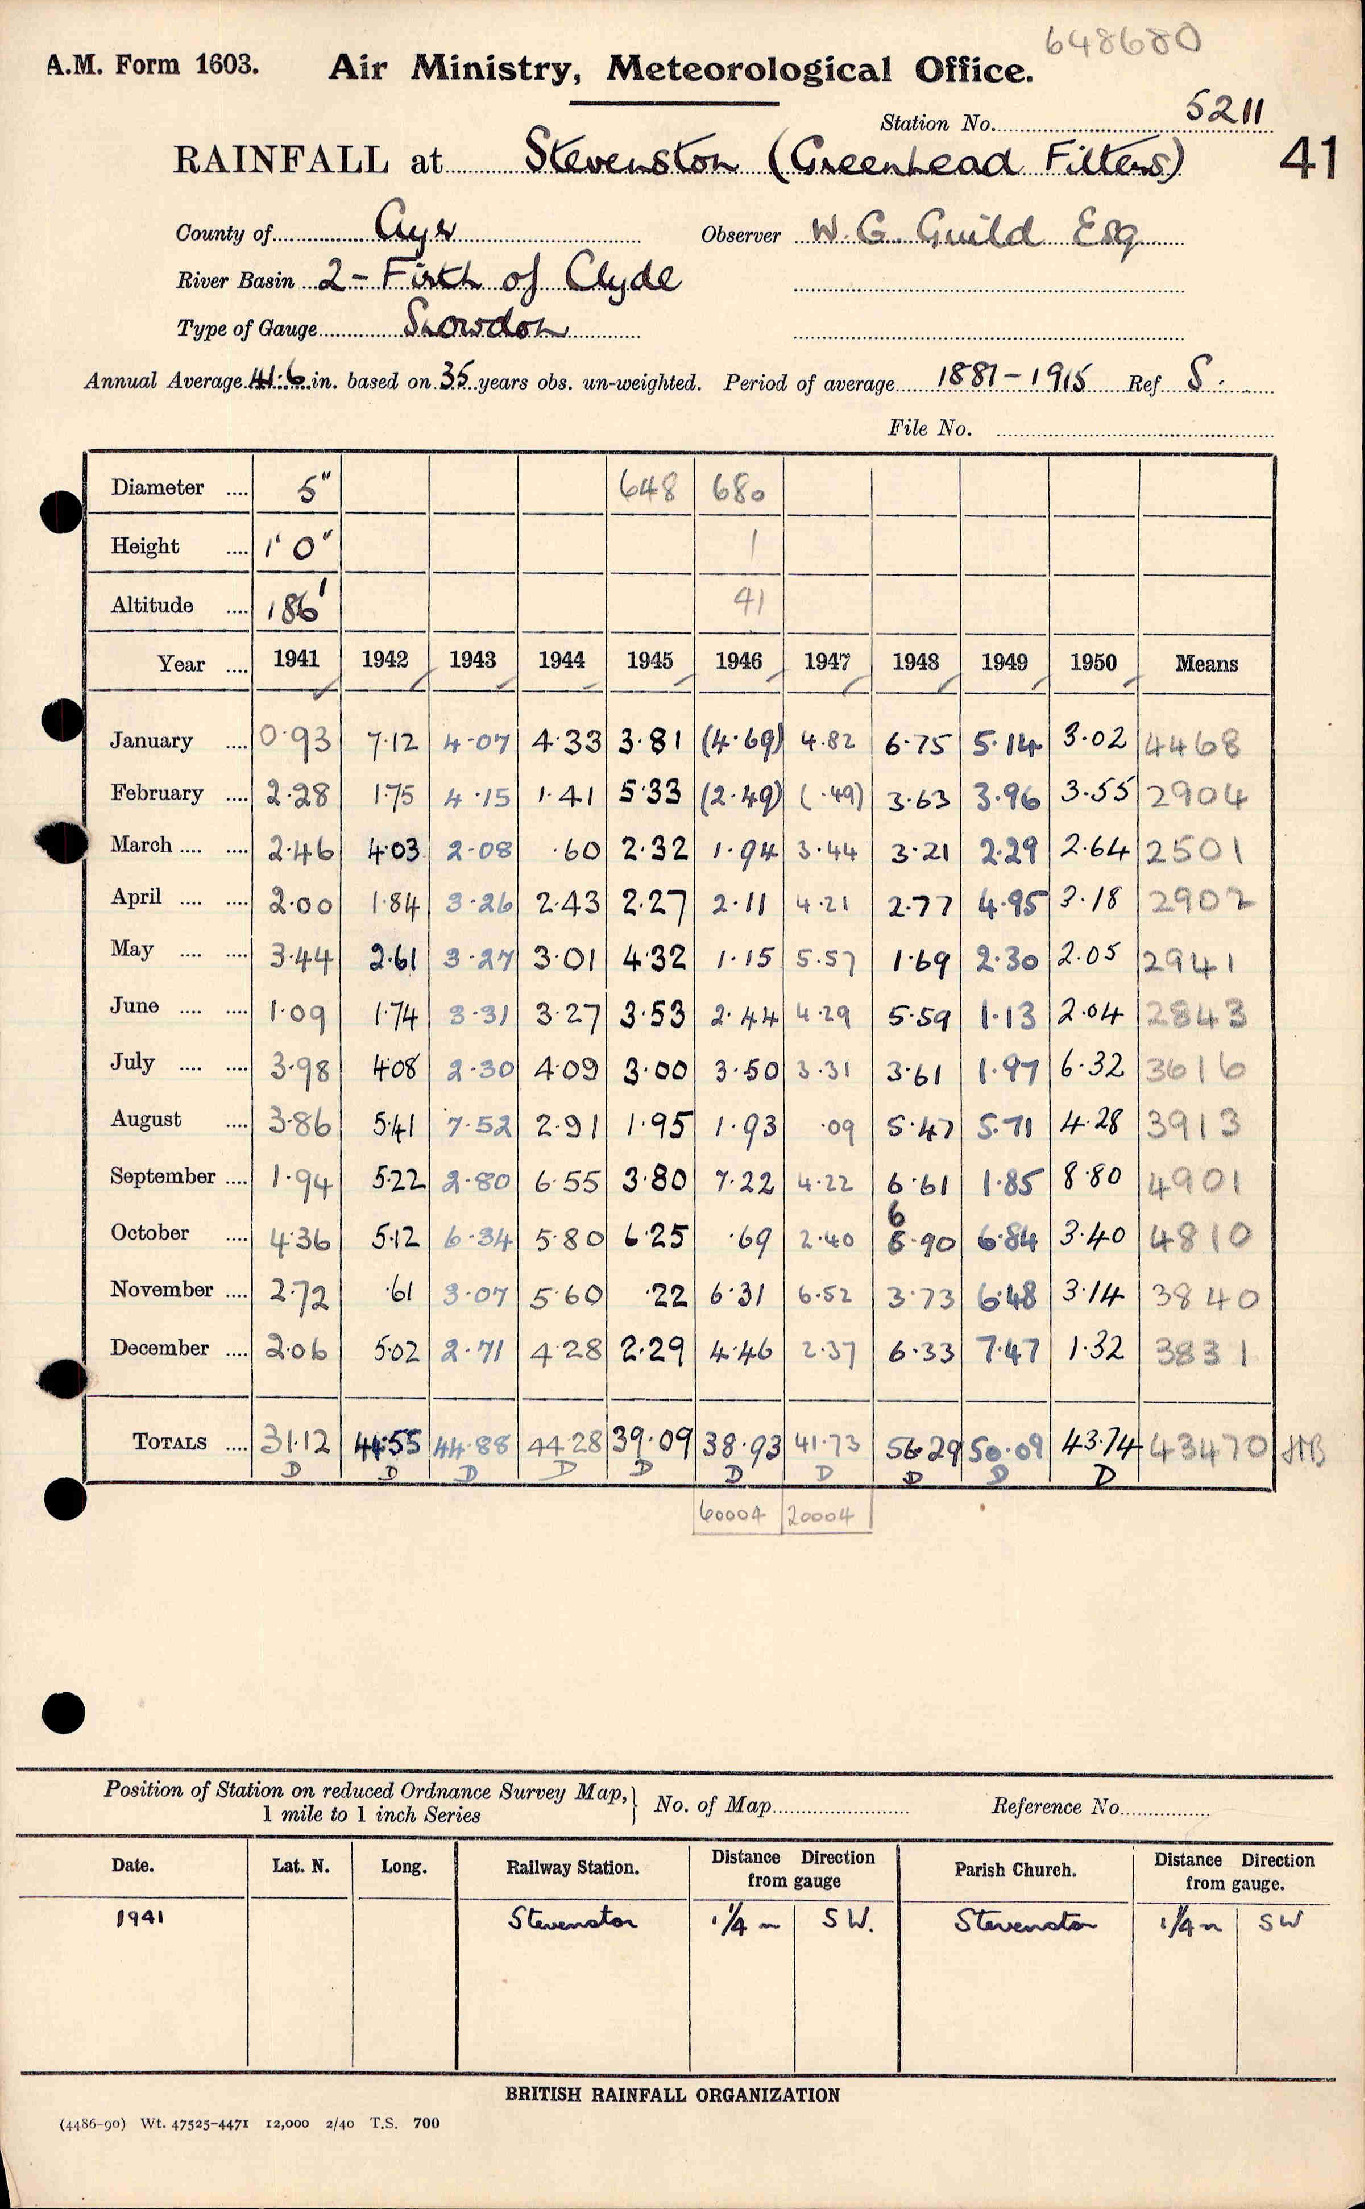 648680
A.M. Form 1603. Air Ministry, Meteorological Office.
Station No. 5211
RAINFALL at Stevenston (Greenhead Filters) 41
County of Ayr Observer W. G. Guild Esq
River Basin 2 - Firth of Clyde
Type of Gauge Snowdon
Annual Average 41·6 in. based on 35 years obs. un-weighted. Period of average 1881-1915 Ref S.
File No.
Diameter .... 5" 648 680
Height .... 1' 0" 1
Altitude .... 186' 41
Year .... 1941 1942 1943 1944 1945 1946 1947 1948 1949 1950 Means
January .... 0·93 7·12 4·07 4·33 3·81 (4·69) 4.82 6·75 5·14 3·02 4468
February .... 2·28 1·75 4·15 1·41 5·33 (2·49) (·49) 3·63 3·96 3·55 2904
March .... .... 2·46 4·03 2·08 ·60 2·32 1·94 3·44 3·21 2·29 2·64 2501
April .... .... 2·00 1·84 3·26 2·43 2·27 2·11 4·21 2·77 4·95 3·18 2902
May .... .... 3·44 2·61 3·27 3·01 4·32 1·15 5·57 1·69 2·30 2·05 2941
June .... .... 1·09 1·74 3·31 3·27 3·53 2·44 4·29 5·59 1·13 2·04 2843
July .... .... 3·98 4·08 2·30 4·09 3·00 3·50 3·31 3·61 1·97 6·32 3616
August .... 3·86 5·41 7·52 2·91 1·95 1·93 ·09 5·47 5·71 4·28 3913
September .... 1·94 5·22 2·80 6·55 3·80 7·22 4·22 6·61 1·85 8·80 4901
6
October .... 4·36 5·12 6·34 5·80 6·25 ·69 2·40 6·90 6·84 3·40 4810
November .... 2·72 ·61 3·07 5·60 ·22 6·31 6·52 3·73 6·48 3·14 3840
December .... 2·06 5·02 2·71 4·28 2·29 4·46 2·37 6·33 7·47 1·32 3831
TOTALS .... 31·12 44·55 44·88 44·28 39·09 38·93 41·73 56·29 50·09 43·74 43470
D D D D D D D D D D
60004 20004
Position of Station on reduced Ordnance Survey Map, } No. of Map Reference No.
1 mile to 1 inch Series
Date. Lat. N. Long. Railway Station. Distance Direction from gauge Parish Church. Distance Direction from gauge.
1941 Stevenston 1¼ m S W. Stevenston 1¼ m S W
BRITISH RAINFALL ORGANIZATION
(4486-90) Wt. 47525-4471 12,000 2/40 T.S. 700